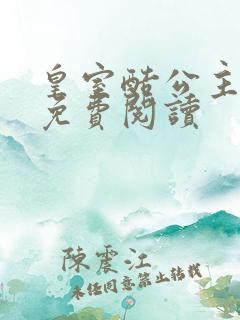 皇室酷公主
免費閱讀
陳震江
未經同意禁止轉載